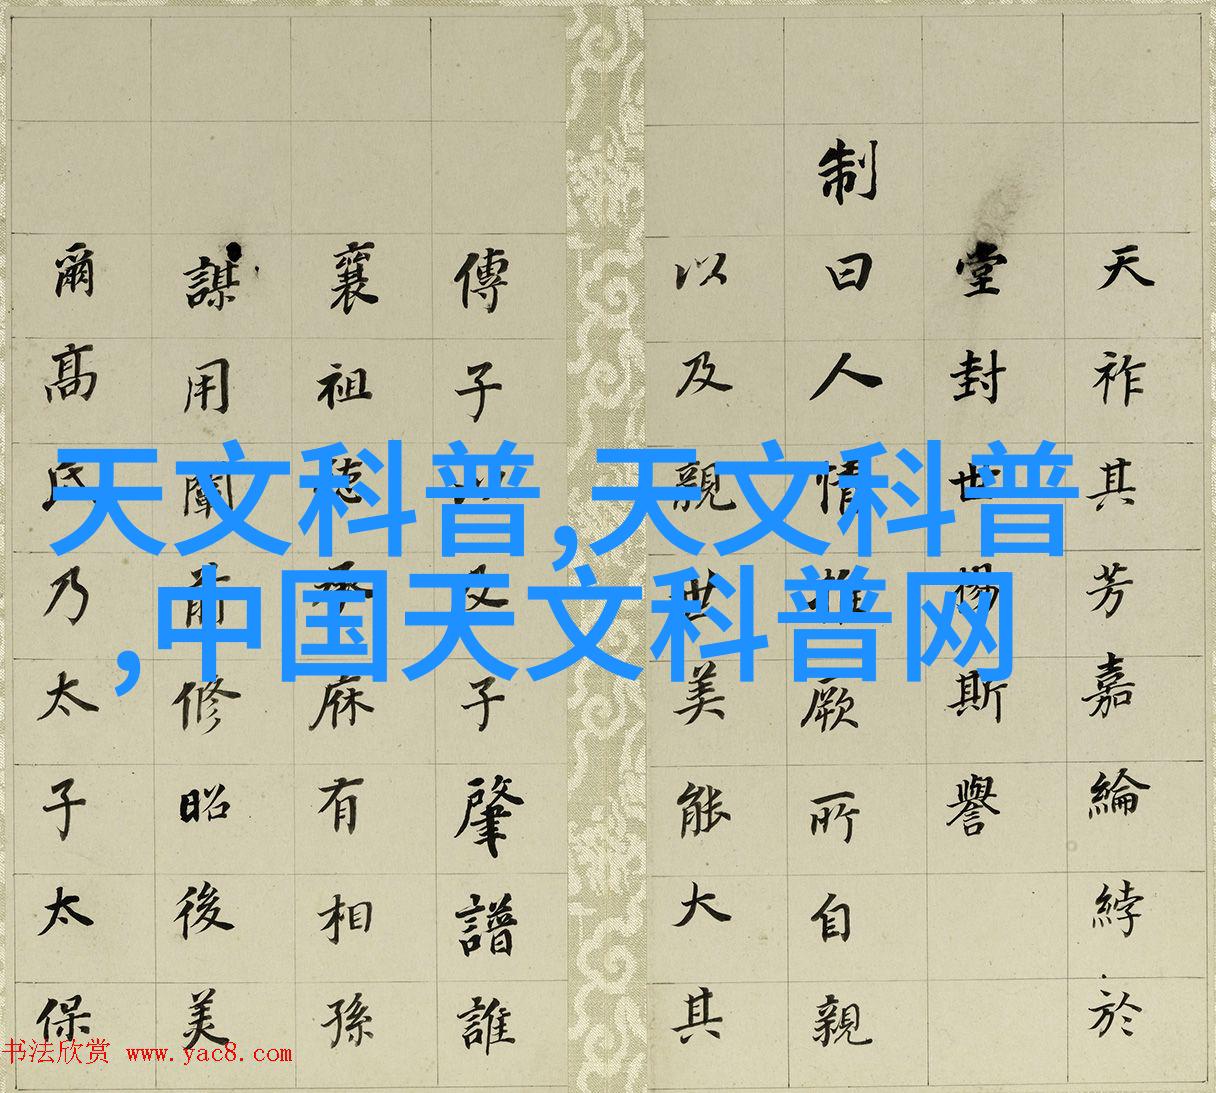 天祚其芳嘉綸綍於
堂封世揚斯譽
制曰人情推厥所自親
以及親世美能大其
傳子以子肇譜誰
襄祖承庥有相孫
謀用闡前修昭後美
爾高氏乃太子太保
天文科普,天文科普
,中国天文科普网
书法欣赏 www.yac8.com